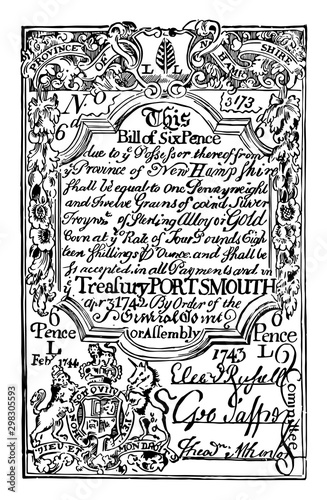 PROVINCE OF N HAMP SHIRE
L L
No 373
6d 6d
This
Bill of Six Pence
due to ye Possessor thereof from
ye Province of New Hampshire
Shall be equal to One Pennyweight
and Twelve Grains of coind Silver
Troy wt of Sterling Alloy or Gold
Coyn at ye Rate of Four Pounds Eigh
teen Shillings P Ounce and shall be
so accepted in all Payments and in
ye Treasury PORTSMOUTH
apr 3 1742 By Order of the
General
or Assembly
6 Pence Pence 6
L 1743 L
Feby 1744
Geo Jaffrey
Committee
HONI SOIT QUI MAL Y
DIEU ET MON DROIT
Adobe Stock | #298305593